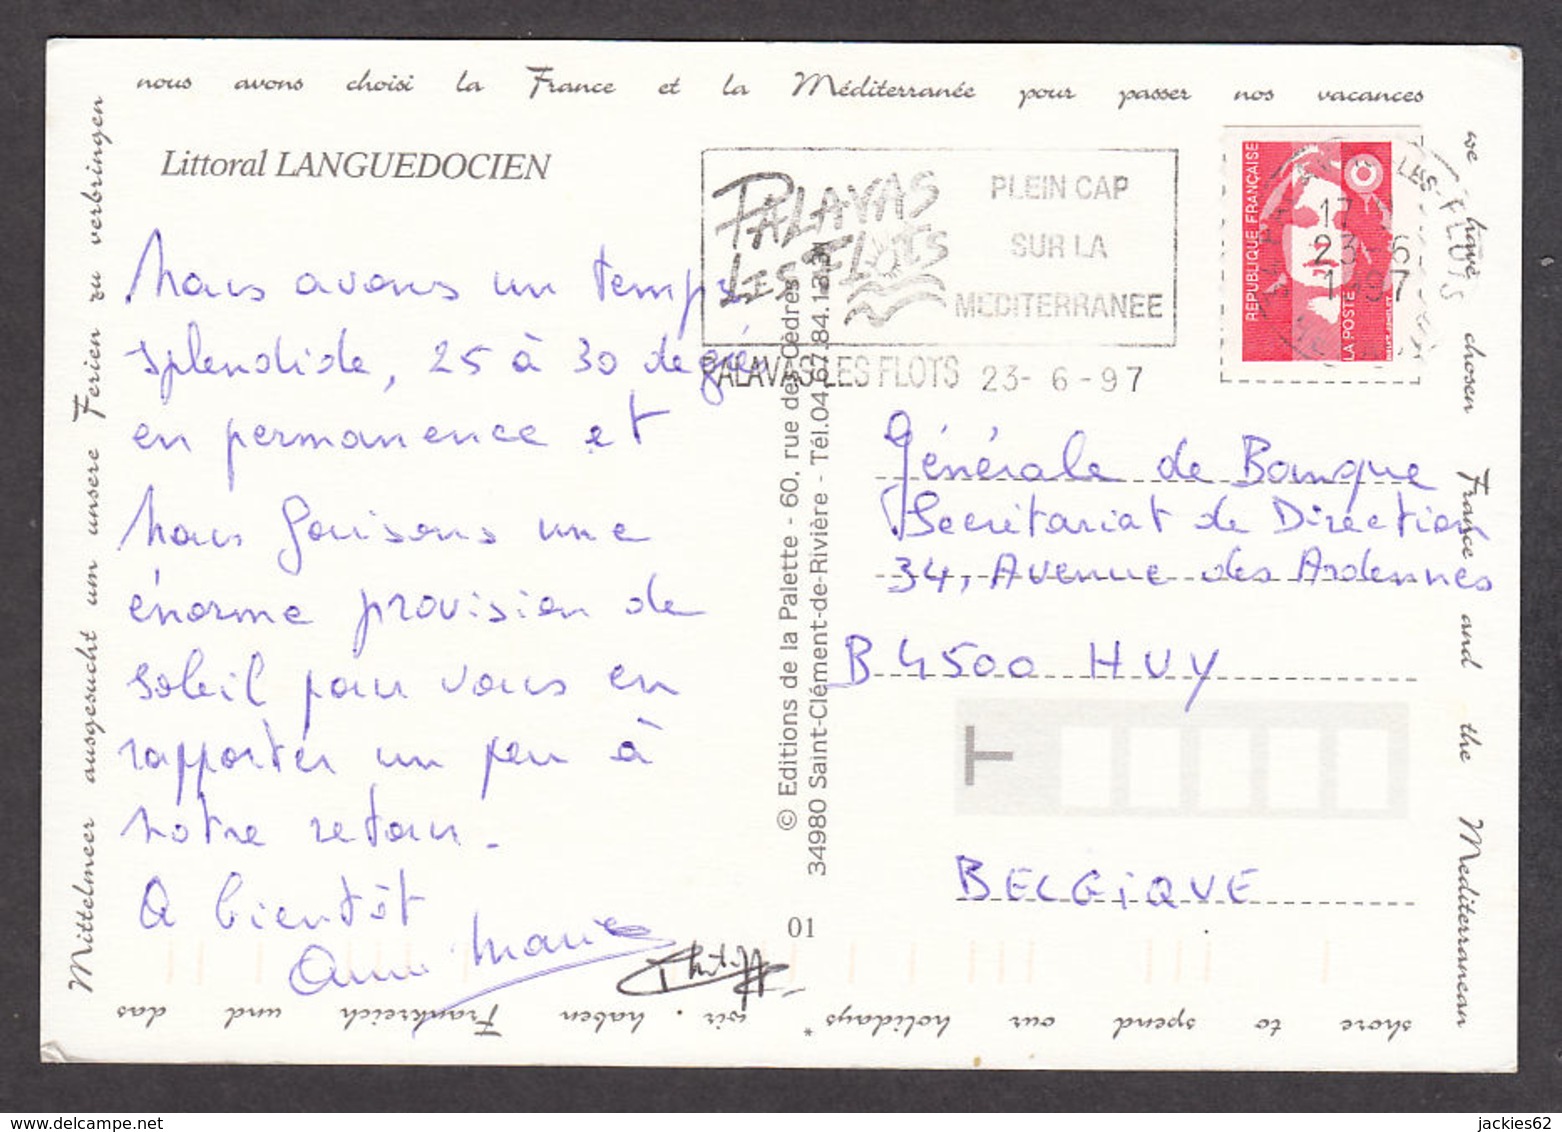 nous avons choisi la France et la Méditerranée pour passer nos vacances
we have chosen France and the Mediterranean
shore to spend our holidays * wir haben Frankreich und das
Mittelmeer ausgesucht um unsere Ferien zu verbringen
Littoral LANGUEDOCIEN
Nous avons un temps
splendide, 25 à 30 degrés
en permanence et
nous jouisons une
énorme provision de
soleil pour vous en
rapporter un peu à
notre retour.
A bientôt
Anne Marie
PALAVAS
LES FLOTS
PLEIN CAP
SUR LA
MEDITERRANEE
PALAVAS LES FLOTS 23- 6 -97
REPUBLIQUE FRANÇAISE
LA POSTE
LES FLOTS
17
23-6
1997
© Editions de la Palette - 60, rue des Cèdres
34980 Saint-Clément-de-Rivière - Tél.04.67.84.13.31
01
Générale de Banque
Secrétariat de Direction
34, Avenue des Ardennes
B 4500 HUY
T
BELGIQUE
jackies62